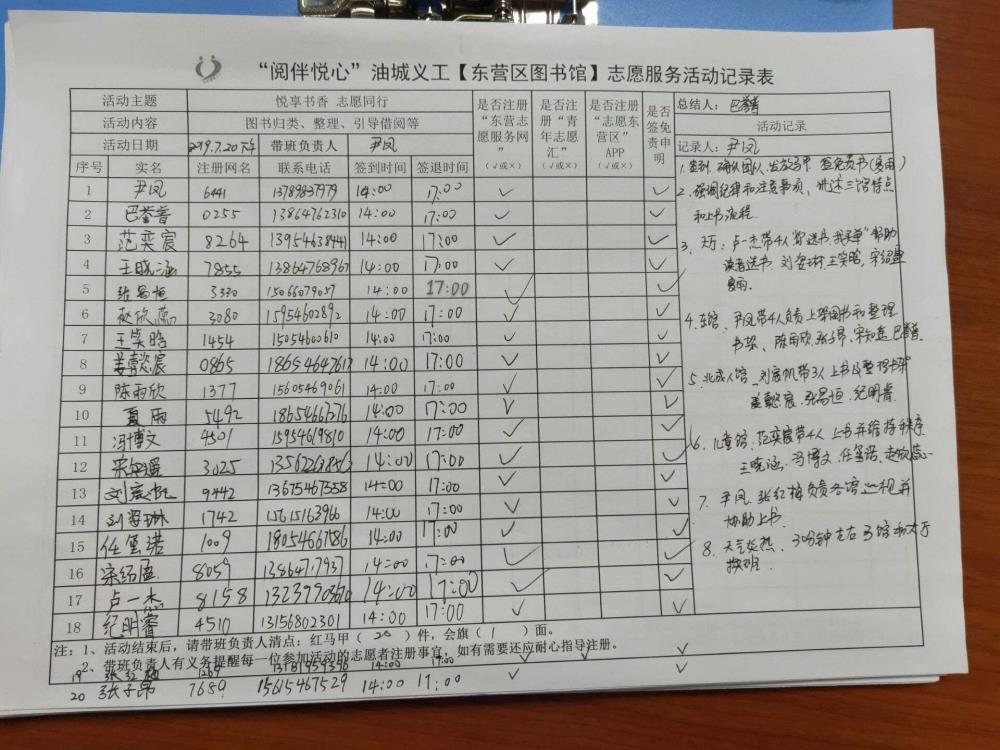 “阅伴悦心”油城义工【东营区图书馆】志愿服务活动记录表
活动主题 悦享书香 志愿同行
活动内容 图书归类、整理、引导借阅等
活动日期 2019.7.20下午 带班负责人 尹凤
序号 实名 注册网名 联系电话 签到时间 签退时间 是否注册“东营志愿服务网”(√或×) 是否注册“青年志愿汇”(√或×) 是否注册“志愿东营区”APP(√或×) 是否签免责申明
1 尹凤 6441 13789837979 14:00 17:00 √ √
2 巴誉普 0255 13864762310 14:00 17:00 √ √
3 范奕宸 8264 13954638441 14:00 17:00 √ √
4 王晓涵 7855 13864768967 14:00 17:00 √ √
5 张易恒 3330 15066079037 14:00 17:00 √ √
6 赵欣蕊 3080 15954602892 14:00 17:00 √ √
7 王笑晗 1454 15054600610 14:00 17:00 √ √
8 姜懿宸 0865 18654647617 14:00 17:00 √ √
9 陈雨欣 1377 15605469061 14:00 17:00 √ √
10 夏雨 5492 18654663376 14:00 17:00 √ √
11 冯博文 4501 15954619810 14:00 17:00 √ √
12 3025 14:00 17:00 √ √
13 刘宸帆 9442 13675467558 14:00 17:00 √ √
14 刘姿琳 1742 15615163966 14:00 17:00 √ √
15 1009 18054667186 14:00 17:00 √ √
16 8059 13864717937 14:00 17:00 √ √
17 卢一杰 8158 14:00 17:00 √ √
18 纪明睿 4510 13156802301 14:00 17:00 √ √
注：1、活动结束后，请带班负责人清点：红马甲（20）件，会旗（1）面。
2、带班负责人有义务提醒每一位参加活动的志愿者注册事宜，如有需要还应耐心指导注册。
19 张红梅 1269 13781959396 14:00 17:00 √ √ √
20 张子昂 7689 15615467529 14:00 17:00 √ √
总结人：巴誉普
活动记录
记录人：尹凤
1.签到、确认团队、发放马甲 签免责书(夏雨)
2、强调纪律和注意事项，讲述三馆特点
和上书流程.
3、大厅：卢一杰带4人“你选书，我买单”帮助
读者选书 刘姿琳、王笑晗、
夏雨.
4.东馆、尹凤带4人负责上架图书和整理
书架、陈雨欣、张子昂、巴誉普.
5、北成人馆、刘宸帆带3人上书及整理书架
姜懿宸、张易恒、纪明睿.
6、儿童馆、范奕宸带4人上书并维持秩序
王晓涵、冯博文、赵欣蕊
7、尹凤、张红梅负责各馆巡视并
协助上书.
8、天气炎热、30分钟左右 3馆和大厅
换班.